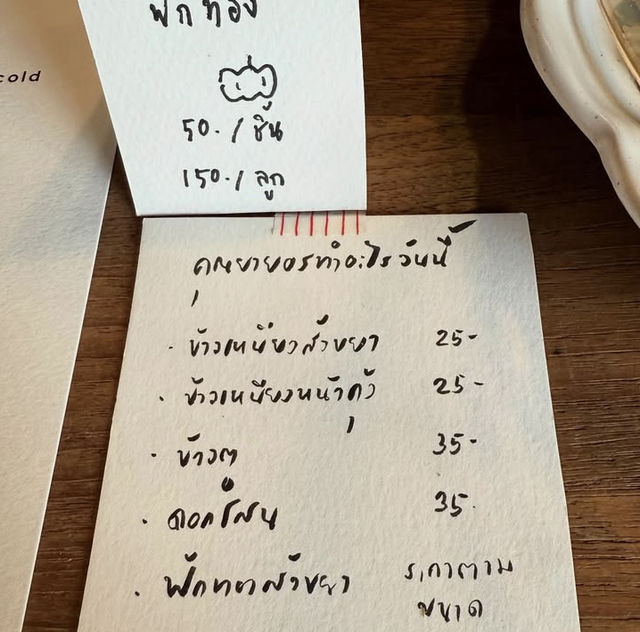 cold
ฟักทอง
50.-/ชิ้น
150.-/ลูก
คุณยายอรทำอะไรวันนี้
· ข้าวเหนียวสังขยา 25-
· ข้าวเหนียวหน้ากุ้ง 25-
· ข้าวตู 35-
· ดอกโสน 35.
· ฟักทองสังขยา ราคาตาม
ขนาด